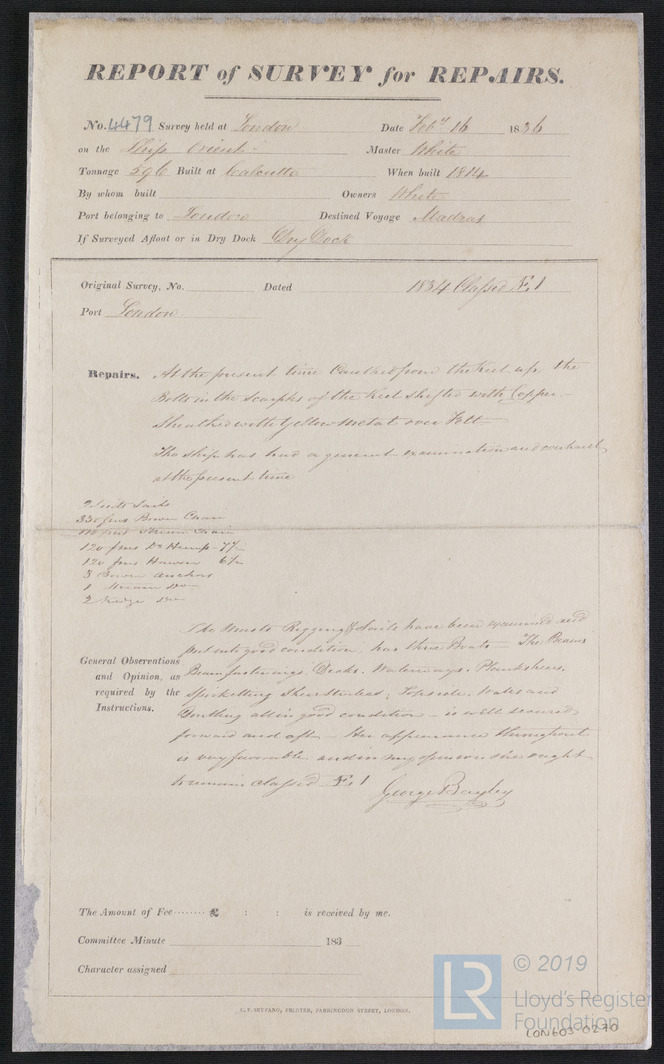 REPORT of SURVEY for REPAIRS.
No. 4479 Survey held at London Date Feby 16 1836
on the Ship Orient Master White
Tonnage 596 Built at Calcutta When built 1814
By whom built Owners White
Port belonging to London Destined Voyage Madras
If Surveyed Afloat or in Dry Dock Dry Dock
Original Survey, No. Dated 1834 Classed Æ 1
Port London.
Repairs. At the present time Caulked from the Keel up the
Bolts in the Scarphs of the Keel shifted with Copper
Sheathed with Yellow Metal over Felt
The Ship has had a general examination and overhaul
at the present time
2 Suits Sails
330 fms Bower Chain
Stream Chain
120 fms Do Hemp 7½
120 fms Hawser 6½
3 Bower anchors
1 Stream do
2 Kedge do
The Masts Rigging & Sails have been examined and
put into good condition, has three Boats – The Beams
General Observations and Opinion, as required by the Instructions.
Beamfastenings, Decks, Waterways, Planksheers,
Spirketting Sheerstrakes, Topside, Wales and
all in good condition – is well secured
forward and aft – Her appearance throughout
is very favorable and in my opinion she ought
to remain Classed Æ 1 George Bayley
The Amount of Fee ........ £ : : is received by me.
Committee Minute 183
Character assigned
C. F. SEYFANG, PRINTER, FARRINGDON STREET, LONDON.
LR © 2019
Lloyd's Register
Foundation
LON603-0270